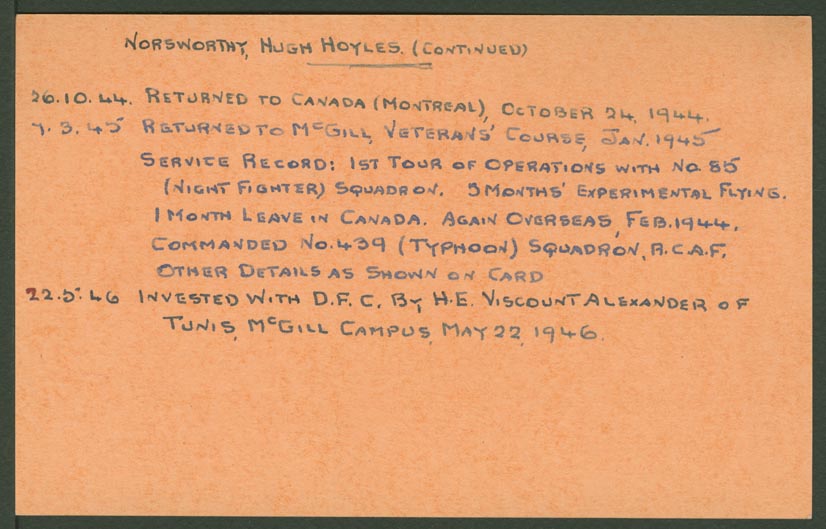 NORSWORTHY, HUGH HOYLES. (CONTINUED)
26.10.44. RETURNED TO CANADA (MONTREAL), OCTOBER 24, 1944.
7.3.45 RETURNED TO McGILL, VETERANS' COURSE, JAN. 1945
SERVICE RECORD: 1ST TOUR OF OPERATIONS WITH NO. 85
(NIGHT FIGHTER) SQUADRON. 5 MONTHS' EXPERIMENTAL FLYING.
1 MONTH LEAVE IN CANADA. AGAIN OVERSEAS, FEB. 1944.
COMMANDED NO. 439 (TYPHOON) SQUADRON, R.C.A.F.
OTHER DETAILS AS SHOWN ON CARD
22.5.46 INVESTED WITH D.F.C. BY H.E. VISCOUNT ALEXANDER OF
TUNIS, McGILL CAMPUS, MAY 22, 1946.